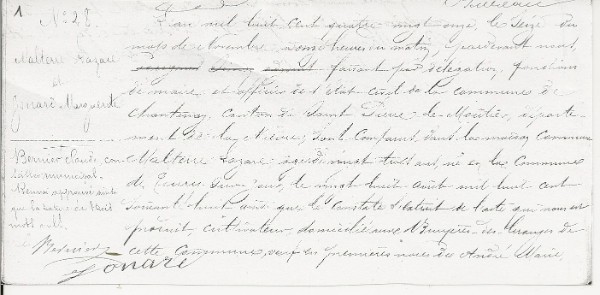 1
N° 28.
Malterre Lazare
et
Jonare Marguerite
L'an mil huit cent quatre vingt onze, le seize du
mois de Novembre onze heures du matin, pardevant nous,
faisant par délégation, fonctions
de maire et officier de l'état civil de la commune de
Chantenay, canton de Saint Pierre-le-Moûtier, départe-
ment de la Nièvre, sont comparus dans la maison commune
Malterre Lazare âgé de vingt trois ans, né en la commune
de sur le vingt huit août mil huit cent
soixante huit ainsi que le constate l'extrait de l'acte qui nous est
produit, cultivateur, domicilié aux Bruyères-des-Granges de
cette commune, veuf en premières noces de André Marie
Bernier Claude con
seiller municipal.
Renvoi approuvé ainsi
que la rature de huit
mots nuls.
Jonare